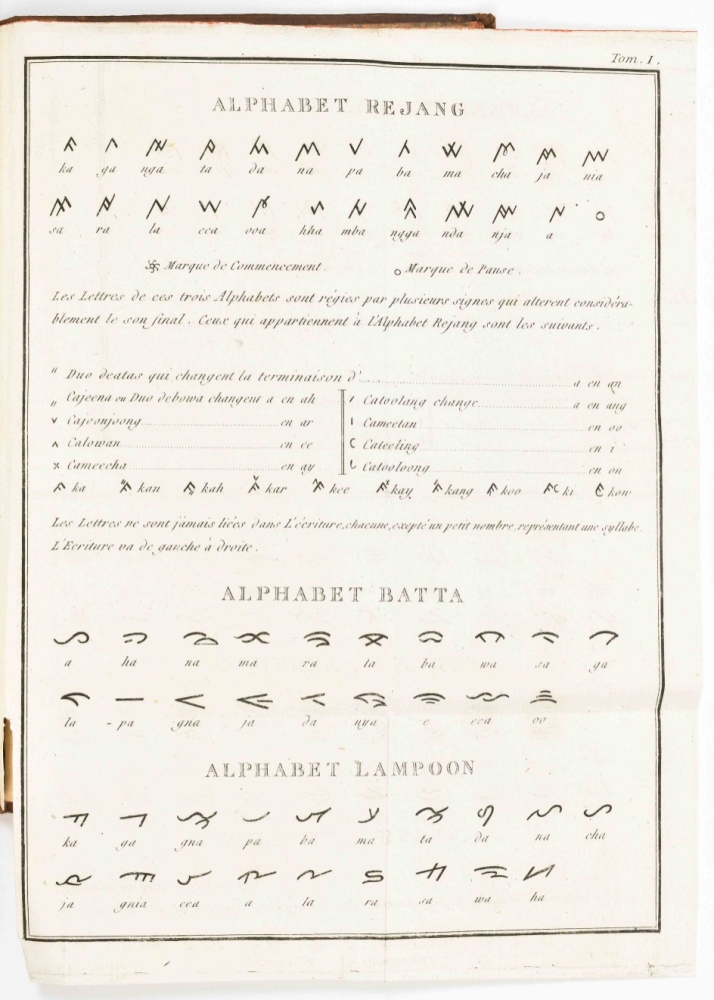 Tom. I.
ALPHABET REJANG
ka ga nga ta da na pa ba ma cha ja nia
sa ra la eea ooa hha mba ngga nda nja a
Marque de Commencement. Marque de Pause.
Les Lettres de ces trois Alphabets sont régies par plusieurs signes qui alterent considéra-
blement le son final. Ceux qui appartiennent à l'Alphabet Rejang sont les suivants.
" Duo deatas qui changent la terminaison d' a en an
„ Cajeena ou Duo debowa changent a en ah
Catoolang change a en ang
Cajoonjoong en ar
Cameetan en oo
Calowan en ee
Cateeling en i
Cameecha en ay
Catooloong en ou
ka kan kah kar kee kay kang koo ki kow
Les Lettres ne sont jamais liées dans L'écriture, chacune, exepté un petit nombre, représentant une syllabe.
L'Ecriture va de gauche à droite.
ALPHABET BATTA
a ha na ma ra ta ba wa sa ga
la - pa gna ja da nya e eea oo
ALPHABET LAMPOON
ka ga gna pa ba ma ta da na cha
ja gnia eea a la ra sa wa ha